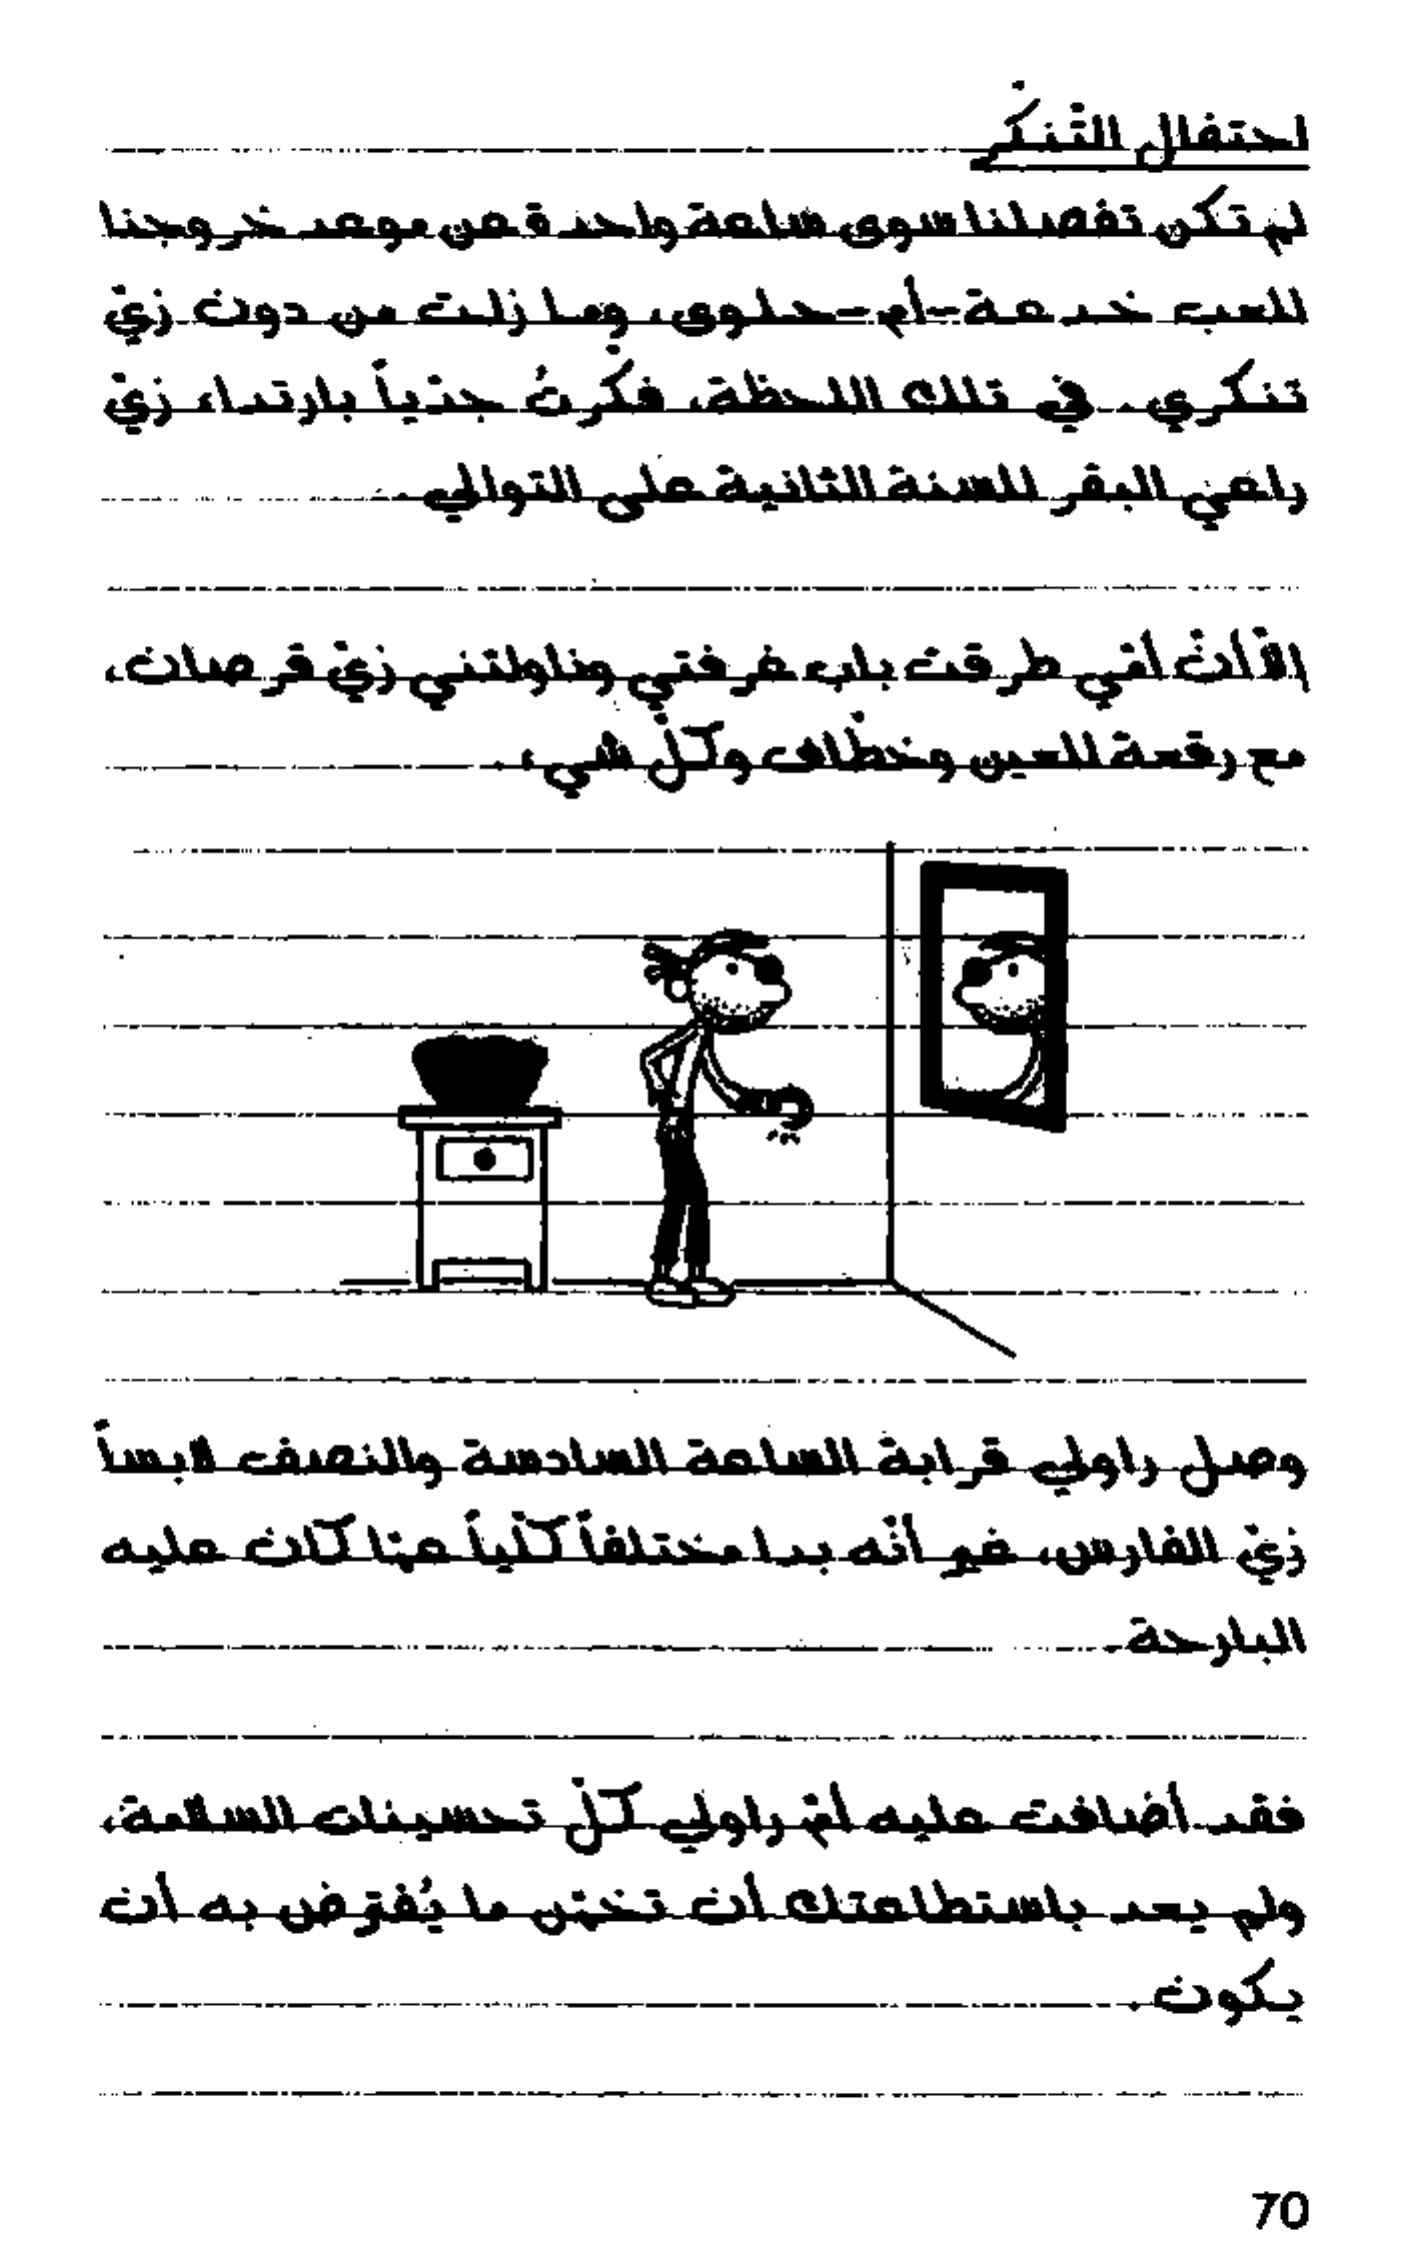 احتفال التّنكّر
لم تكن تفصلنا سوى ساعة واحدة عن موعد خروجنا
للعب خدعة-أم-حلوى، وما زلت من دون زيّ
تنكري. في تلك اللحظة، فكّرتُ جدّياً بارتداء زيّ
راعي البقر للسنة الثانية على التوالي.
إلاّ أنّ أمّي طرقت باب غرفتي وناولتني زيّ قرصان،
مع رقعة للعين وخطّاف وكلّ شيء.
وصل راولي قرابة الساعة السادسة والنصف لابساً
زيّ الفارس، غير أنّه بدا مختلفاً كلّياً عمّا كان عليه
البارحة.
فقد أضافت عليه أمّ راولي كلّ تحسينات السلامة،
ولم يعد باستطاعتك أن تخمّن ما يُفترض به أن
يكون.
70